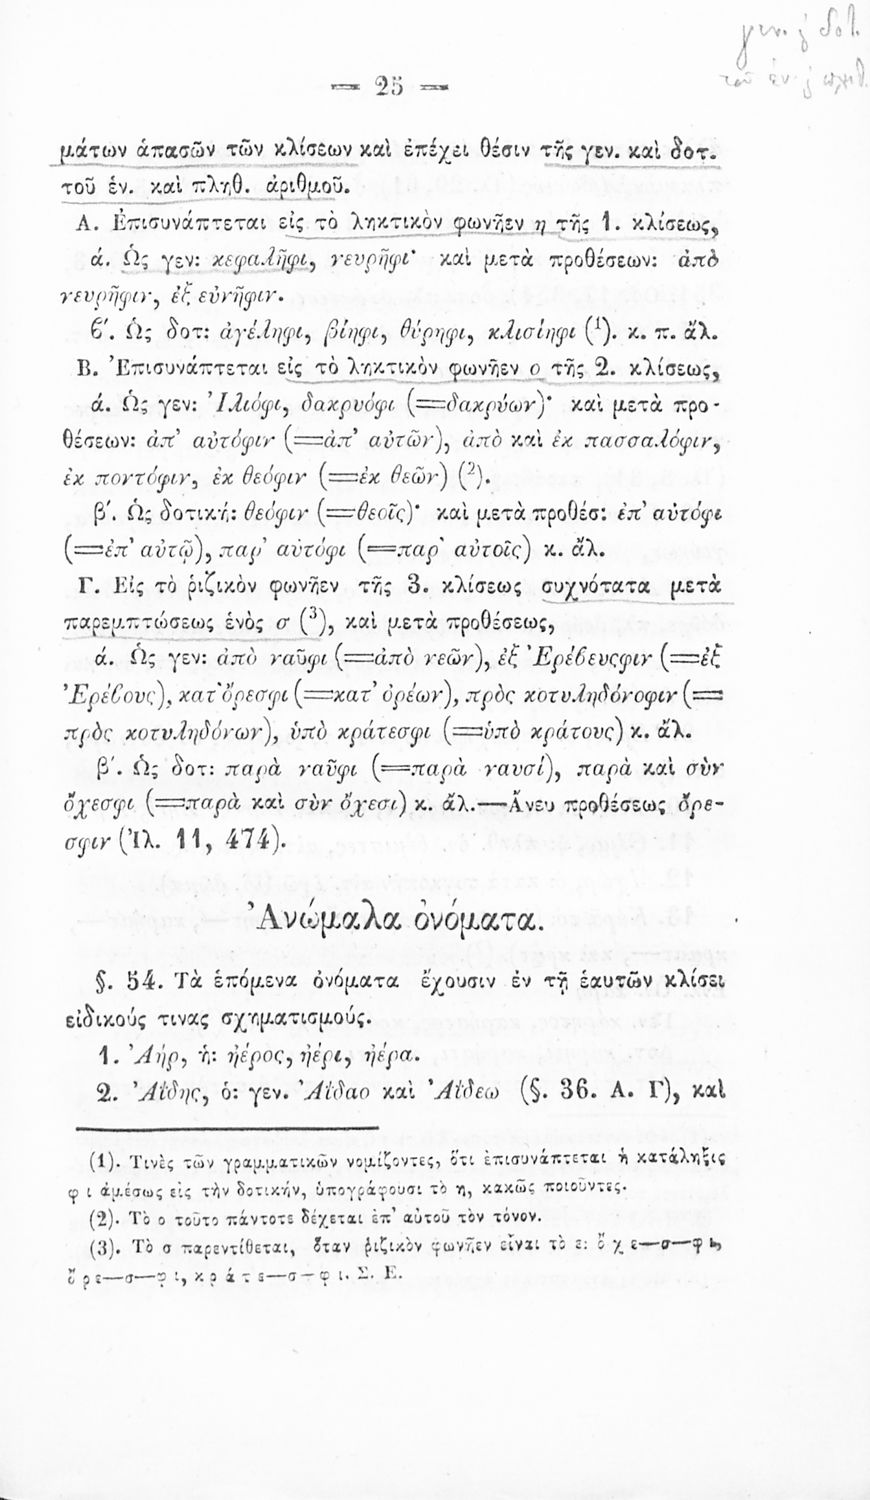 γεν. ἢ δοτ.
τοῦ ἑν. ἢ πληθ.
— 25 —
μάτων ἁπασῶν τῶν κλίσεων καὶ ἐπέχει θέσιν τῆς γεν. καὶ δοτ.
τοῦ ἑν. καὶ πληθ. ἀριθμοῦ.
Α. Ἐπισυνάπτεται εἰς τὸ ληκτικὸν φωνῆεν η τῆς 1. κλίσεως,
ά. Ὡς γεν: κεφαλῆφι, νευρῆφι· καὶ μετὰ προθέσεων: ἀπὸ
νευρῆφιν, ἐξ εὐνῆφιν.
ϐ'. Ὡς δοτ: ἀγέληφι, βίηφι, θύρηφι, κλισίηφι (1). κ. π. ἄλ.
Β. Ἐπισυνάπτεται εἰς τὸ ληκτικὸν φωνῆεν ο τῆς 2. κλίσεως,
ά. Ὡς γεν: Ἰλιόφι, δακρυόφι (=δακρύων)· καὶ μετὰ προ-
θέσεων: ἀπ' αὐτόφιν (=ἀπ' αὐτῶν), ἀπὸ καὶ ἐκ πασσαλόφιν,
ἐκ ποντόφιν, ἐκ θεόφιν (=ἐκ θεῶν) (2).
β'. Ὡς δοτική: θεόφιν (=θεοῖς)· καὶ μετὰ προθέσ: ἐπ' αὐτόφι
(=ἐπ' αὐτῷ), παρ' αὐτόφι (=παρ' αὐτοῖς) κ. ἄλ.
Γ. Εἰς τὸ ῥιζικὸν φωνῆεν τῆς 3. κλίσεως συχνότατα μετὰ
παρεμπτώσεως ἑνὸς σ (3), καὶ μετὰ προθέσεως,
ά. Ὡς γεν: ἀπὸ ναῦφι (=ἀπὸ νεῶν), ἐξ Ἐρέϐευσφιν (=ἐξ
Ἐρέϐους), κατ' ὄρεσφι (=κατ' ὀρέων), πρὸς κοτυληδόνοφιν (=
πρὸς κοτυληδόνων), ὑπὸ κράτεσφι (=ὑπὸ κράτους) κ. ἄλ.
β'. Ὡς δοτ: παρὰ ναῦφι (=παρὰ ναυσί), παρὰ καὶ σὺν
ὄχεσφι (=παρὰ καὶ σὺν ὄχεσι) κ. ἄλ.—Ἄνευ προθέσεως ὄρε-
σφιν (Ἰλ. 11, 474).
Ἀνώμαλα ὀνόματα.
§. 54. Τὰ ἑπόμενα ὀνόματα ἔχουσιν ἐν τῇ ἑαυτῶν κλίσει
εἰδικούς τινας σχηματισμούς.
1. Ἀήρ, ἡ: ἠέρος, ἠέρι, ἠέρα.
2. Ἀΐδης, ὁ: γεν. Ἀΐδαο καὶ Ἀΐδεω (§. 36. Α. Γ), καὶ
(1). Τινὲς τῶν γραμματικῶν νομίζοντες, ὅτι ἐπισυνάπτεται ἡ κατάληξις
φ ι ἀμέσως εἰς τὴν δοτικήν, ὑπογράφουσι τὸ η, κακῶς ποιοῦντες.
(2). Τὸ ο τοῦτο πάντοτε δέχεται ἐπ' αὐτοῦ τὸν τόνον.
(3). Τὸ σ παρεντίθεται, ὅταν ῥιζικὸν φωνῆεν εἶναι τὸ ε: ὄ χ ε—σ—φ ι,
ὄ ρ ε—σ—φ ι, κ ρ ά τ ε—σ—φ ι. Σ. Ε.